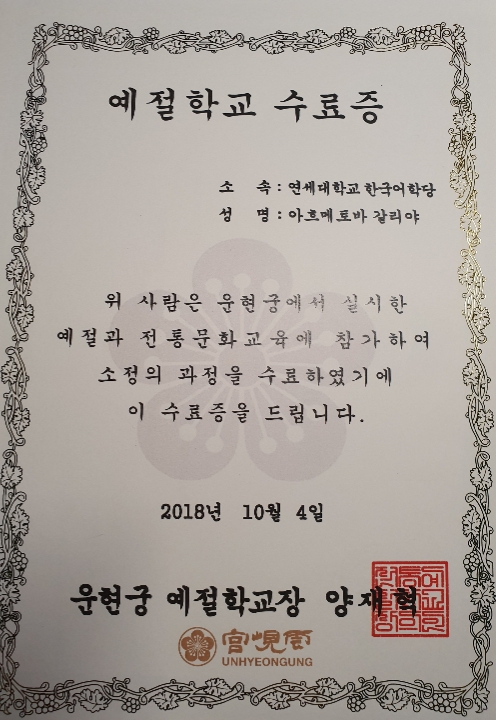 예절학교 수료증
소 속 : 연세대학교 한국어학당
성 명 : 아흐메토바 갈리야
위 사람은 운현궁에서 실시한
예절과 전통문화교육에 참가하여
소정의 과정을 수료하였기에
이 수료증을 드립니다.
2018년 10월 4일
운현궁 예절학교장 양재혁
宮峴雲
UNHYEONGUNG